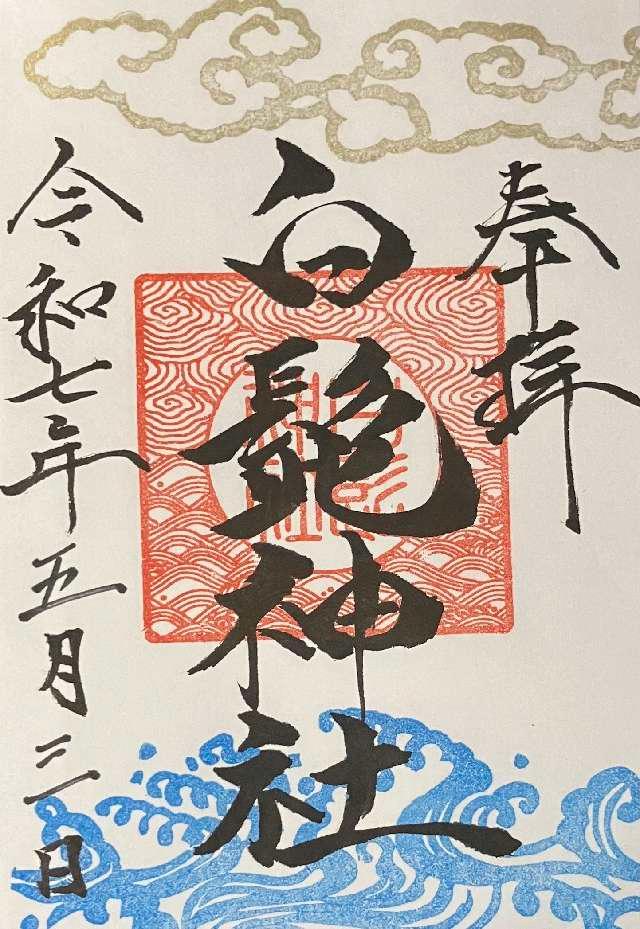 奉拝
白髭神社
令和七年五月三日